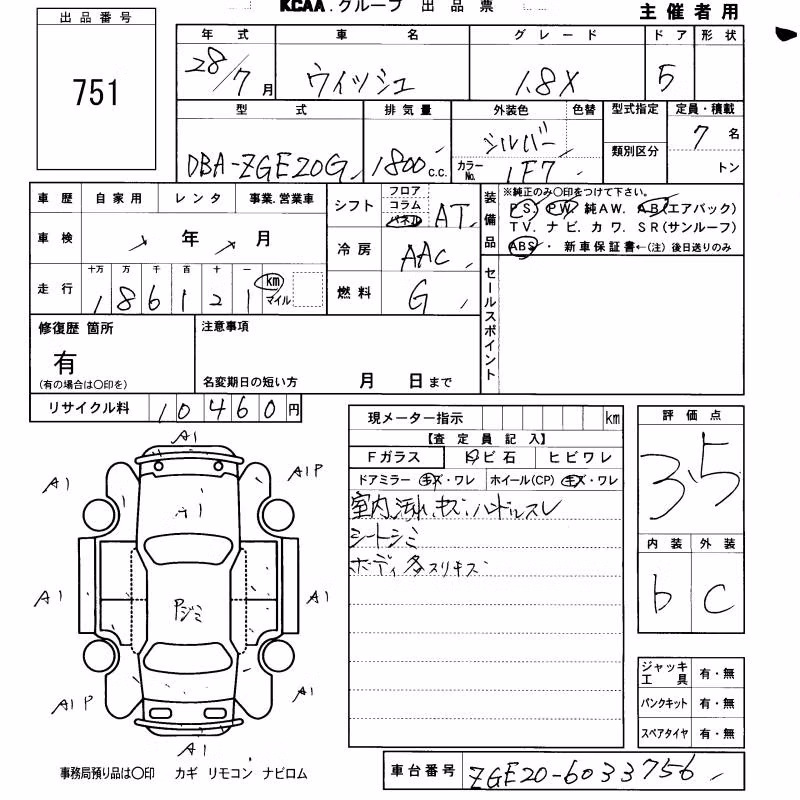 KCAA.グループ 出品票
主催者用
出品番号
751
年式 車名 グレード ドア 形状
28/7月 ウィッシュ 1.8X 5
型式 排気量 外装色 色替 型式指定 定員・積載
DBA-ZGE20G 1800c.c. シルバー 7名
カラーNo. 1F7 類別区分 トン
車歴 自家用 レンタ 事業.営業車
シフト フロア コラム パネル AT
装備品 ※純正のみ〇印をつけて下さい。
PS. PW. 純AW. AB(エアバック)
TV. ナビ. カワ. SR(サンルーフ)
ABS・ 新車保証書←(注)後日送りのみ
車検 年 月
冷房 AAC
走行 十万 万 千 百 十 一
186121 km マイル
燃料 G
セールスポイント
修復歴 箇所
有
(有の場合は〇印を)
注意事項
名変期日の短い方 月 日まで
リサイクル料 10460円
現メーター指示 km
【査定員記入】
Fガラス トビ石 ヒビワレ
ドアミラー キズ・ワレ ホイール(CP) キズ・ワレ
室内汚れ、キズ、ハンドルスレ
シートシミ
ボディ各スリキズ
評価点
3.5
内装 外装
b C
ジャッキ工具 有・無
パンクキット 有・無
スペアタイヤ 有・無
A1
A1 A1P
A1
A1 A1
Pジミ
A1P A1
A1
事務局預り品は〇印 カギ リモコン ナビロム
車台番号 ZGE20-6033756